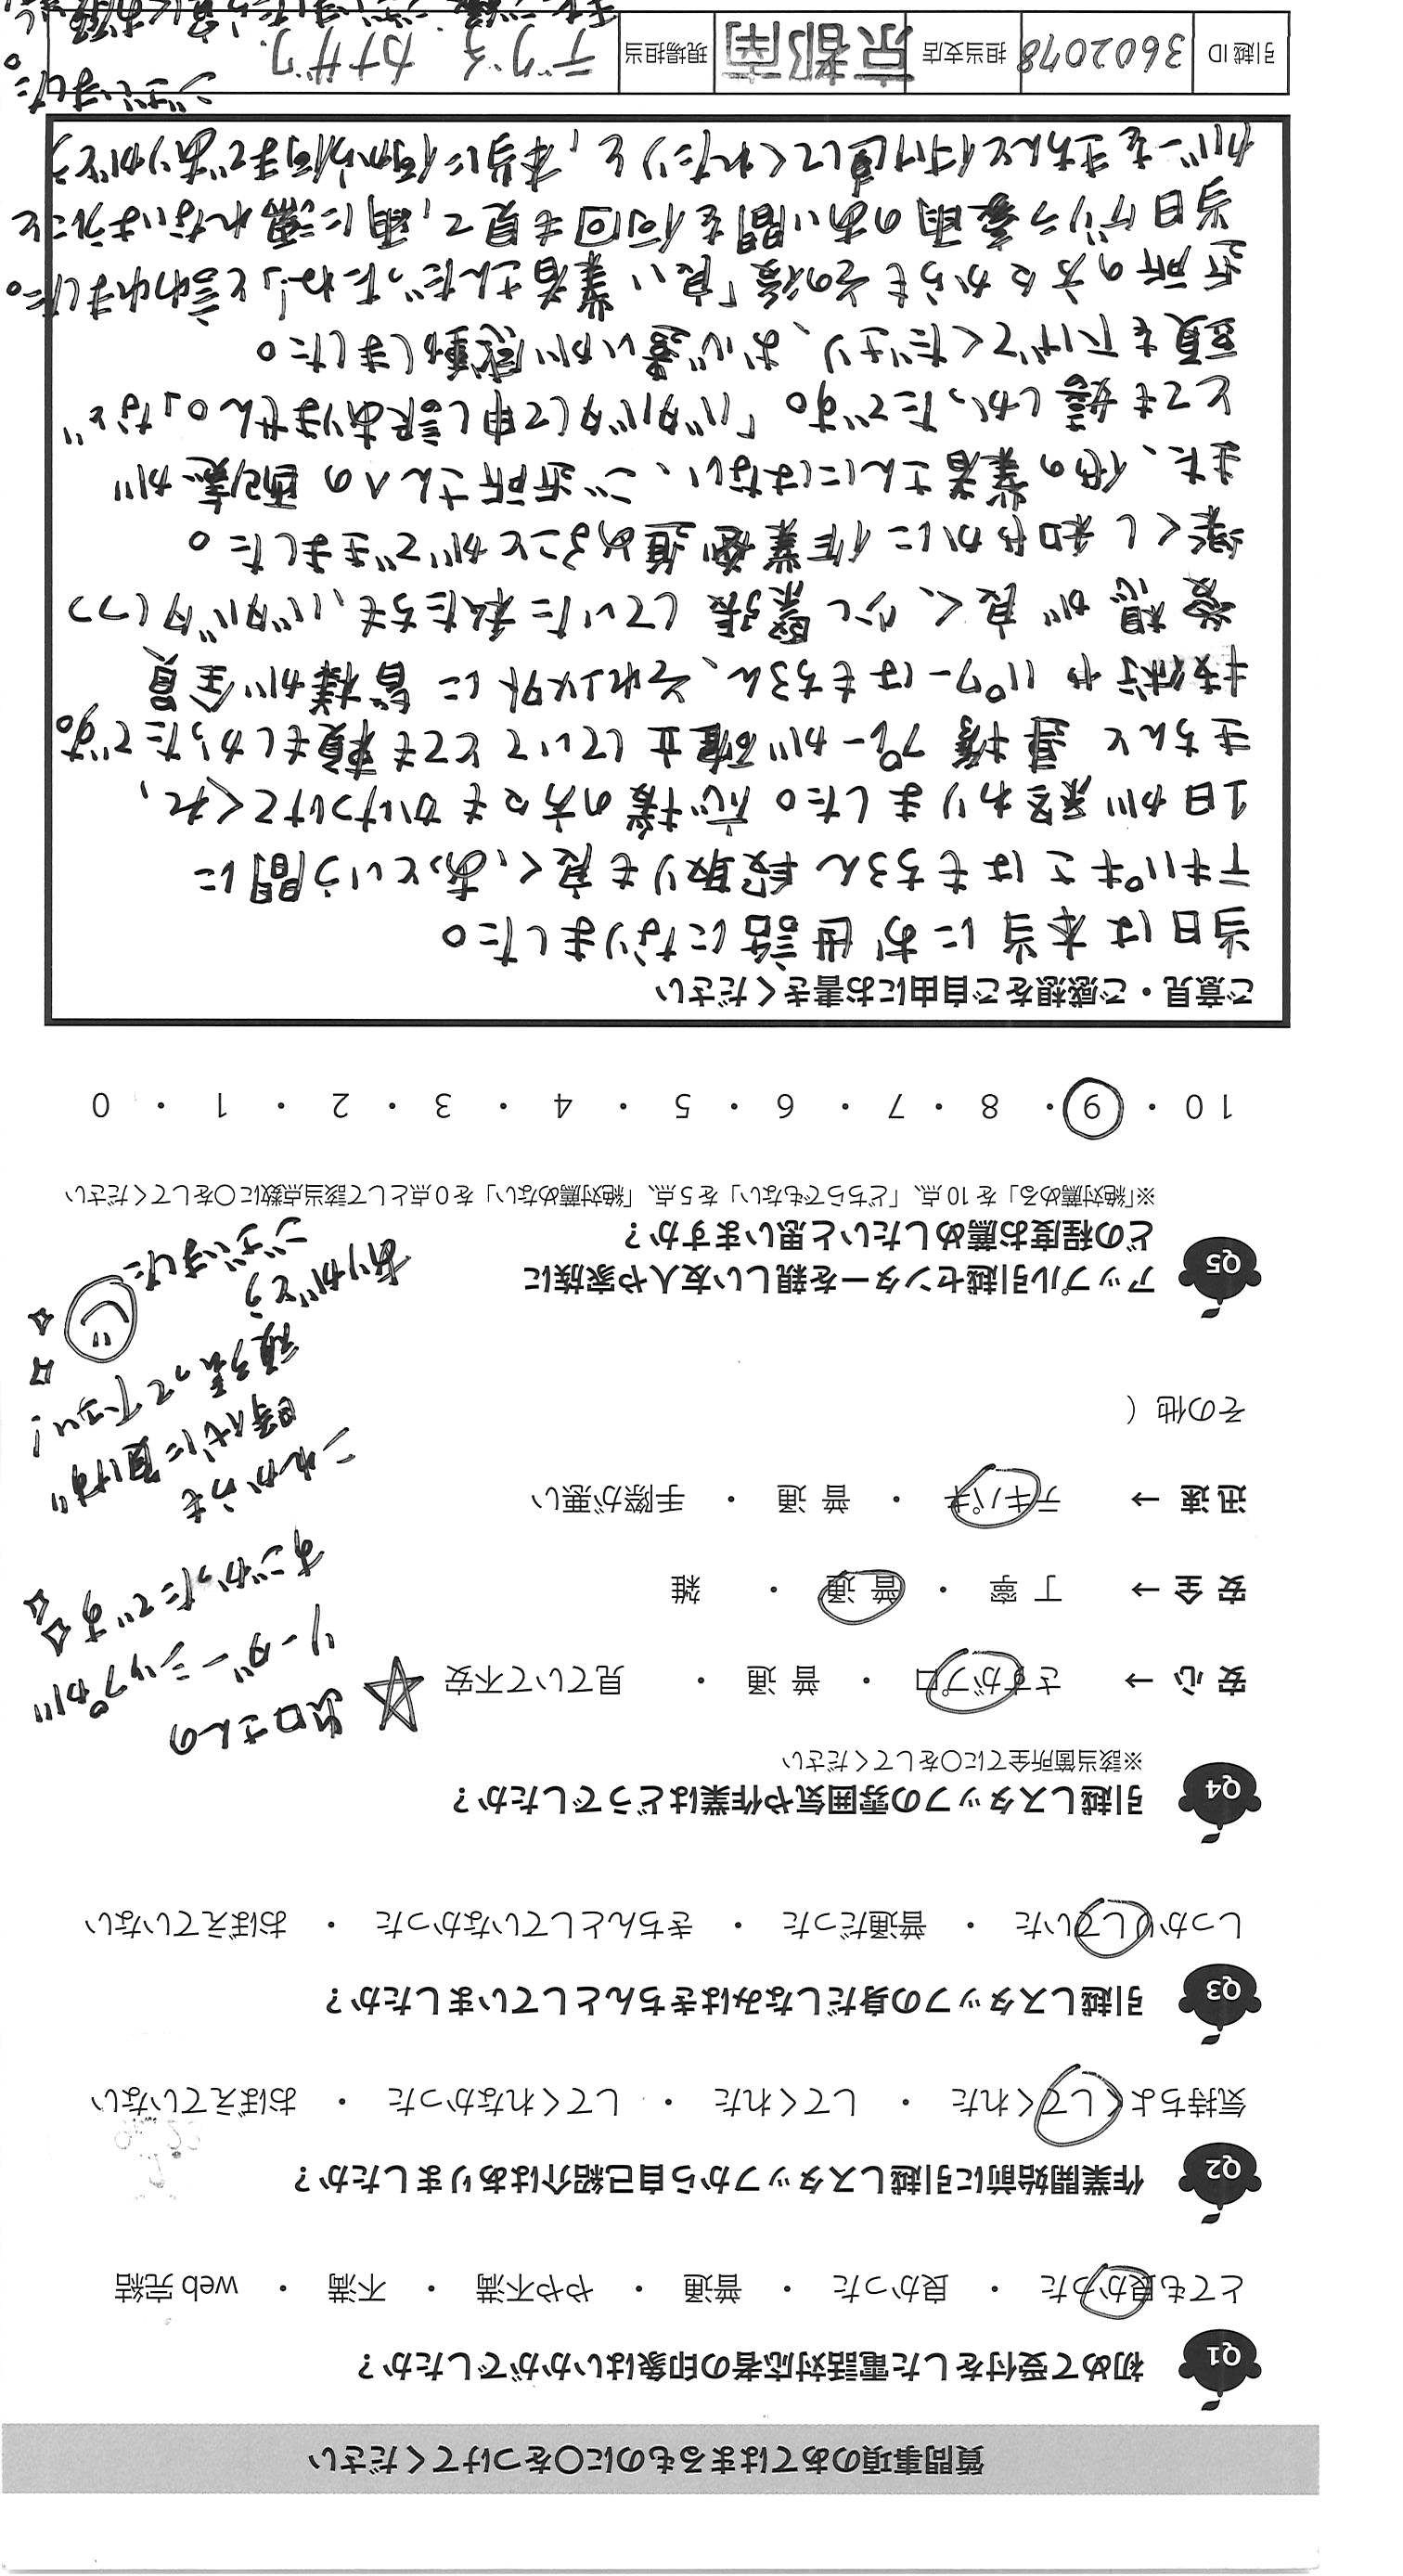 質問事項のあてはまるものに〇をつけてください
Q1 初めて受付をした電話対応者の印象はいかがでしたか？
とても良かった ・ 良かった ・ 普通 ・ やや不満 ・ 不満 ・ web 完結
Q2 作業開始前に引越しスタッフから自己紹介はありましたか？
気持ちよくしてくれた ・ してくれた ・ してくれなかった ・ おぼえていない
Q3 引越しスタッフの身だしなみはきちんとしていましたか？
しっかりしていた ・ 普通だった ・ きちんとしていなかった ・ おぼえていない
Q4 引越しスタッフの雰囲気や作業はどうでしたか？
※該当箇所全てに〇をしてください
安 心 → さすがプロ ・ 普 通 ・ 見ていて不安
安 全 → 丁 寧 ・ 普 通 ・ 雑
迅 速 → テキパキ ・ 普 通 ・ 手際が悪い
その他（
☆ 出口さんの
リーダーシップが
すごかったです
これからも
時代に負けず
頑張って下さい！
ありがとう
ございました
Q5 アップル引越センターを親しい友人や家族に
どの程度お薦めしたいと思いますか？
※「絶対薦める」を 10 点、「どちらでもない」を 5 点、「絶対薦めない」を 0 点として該当点数に〇をしてください
10 ・ 9 ・ 8 ・ 7 ・ 6 ・ 5 ・ 4 ・ 3 ・ 2 ・ 1 ・ 0
ご意見・ご感想をご自由にお書きください
当日は本当にお世話になりました。
テキパキさはもちろん段取りも良く、あっという間に
1日が終わりました。応援の方々もかけつけてくれ、
きちんと連携プレーが確立していてとても頼もしかったです。
技術やパワーはもちろん、それ以外に皆様が全員
愛想が良く、少し緊張していた私たちも、バタバタしつつ
楽しく和やかに作業進めることができました。
また、他の業者さんにはない、ご近所さんへの配慮が
とても嬉しかったです。「バタバタして申し訳ありません。」など
頭を下げてくださり、お心遣いが感動しました。
近所の方々からもその後「良い業者さんだったね!」と言われました。
当日ゲリラ豪雨のあい間を何回も見て、雨に濡れないようにと
カバーをきちんと付け直してくれたりと、本当に何から何までありがとう
ございました。
引越 ID 3602078 担当支店 京都南 現場担当 デグチ カナザワ